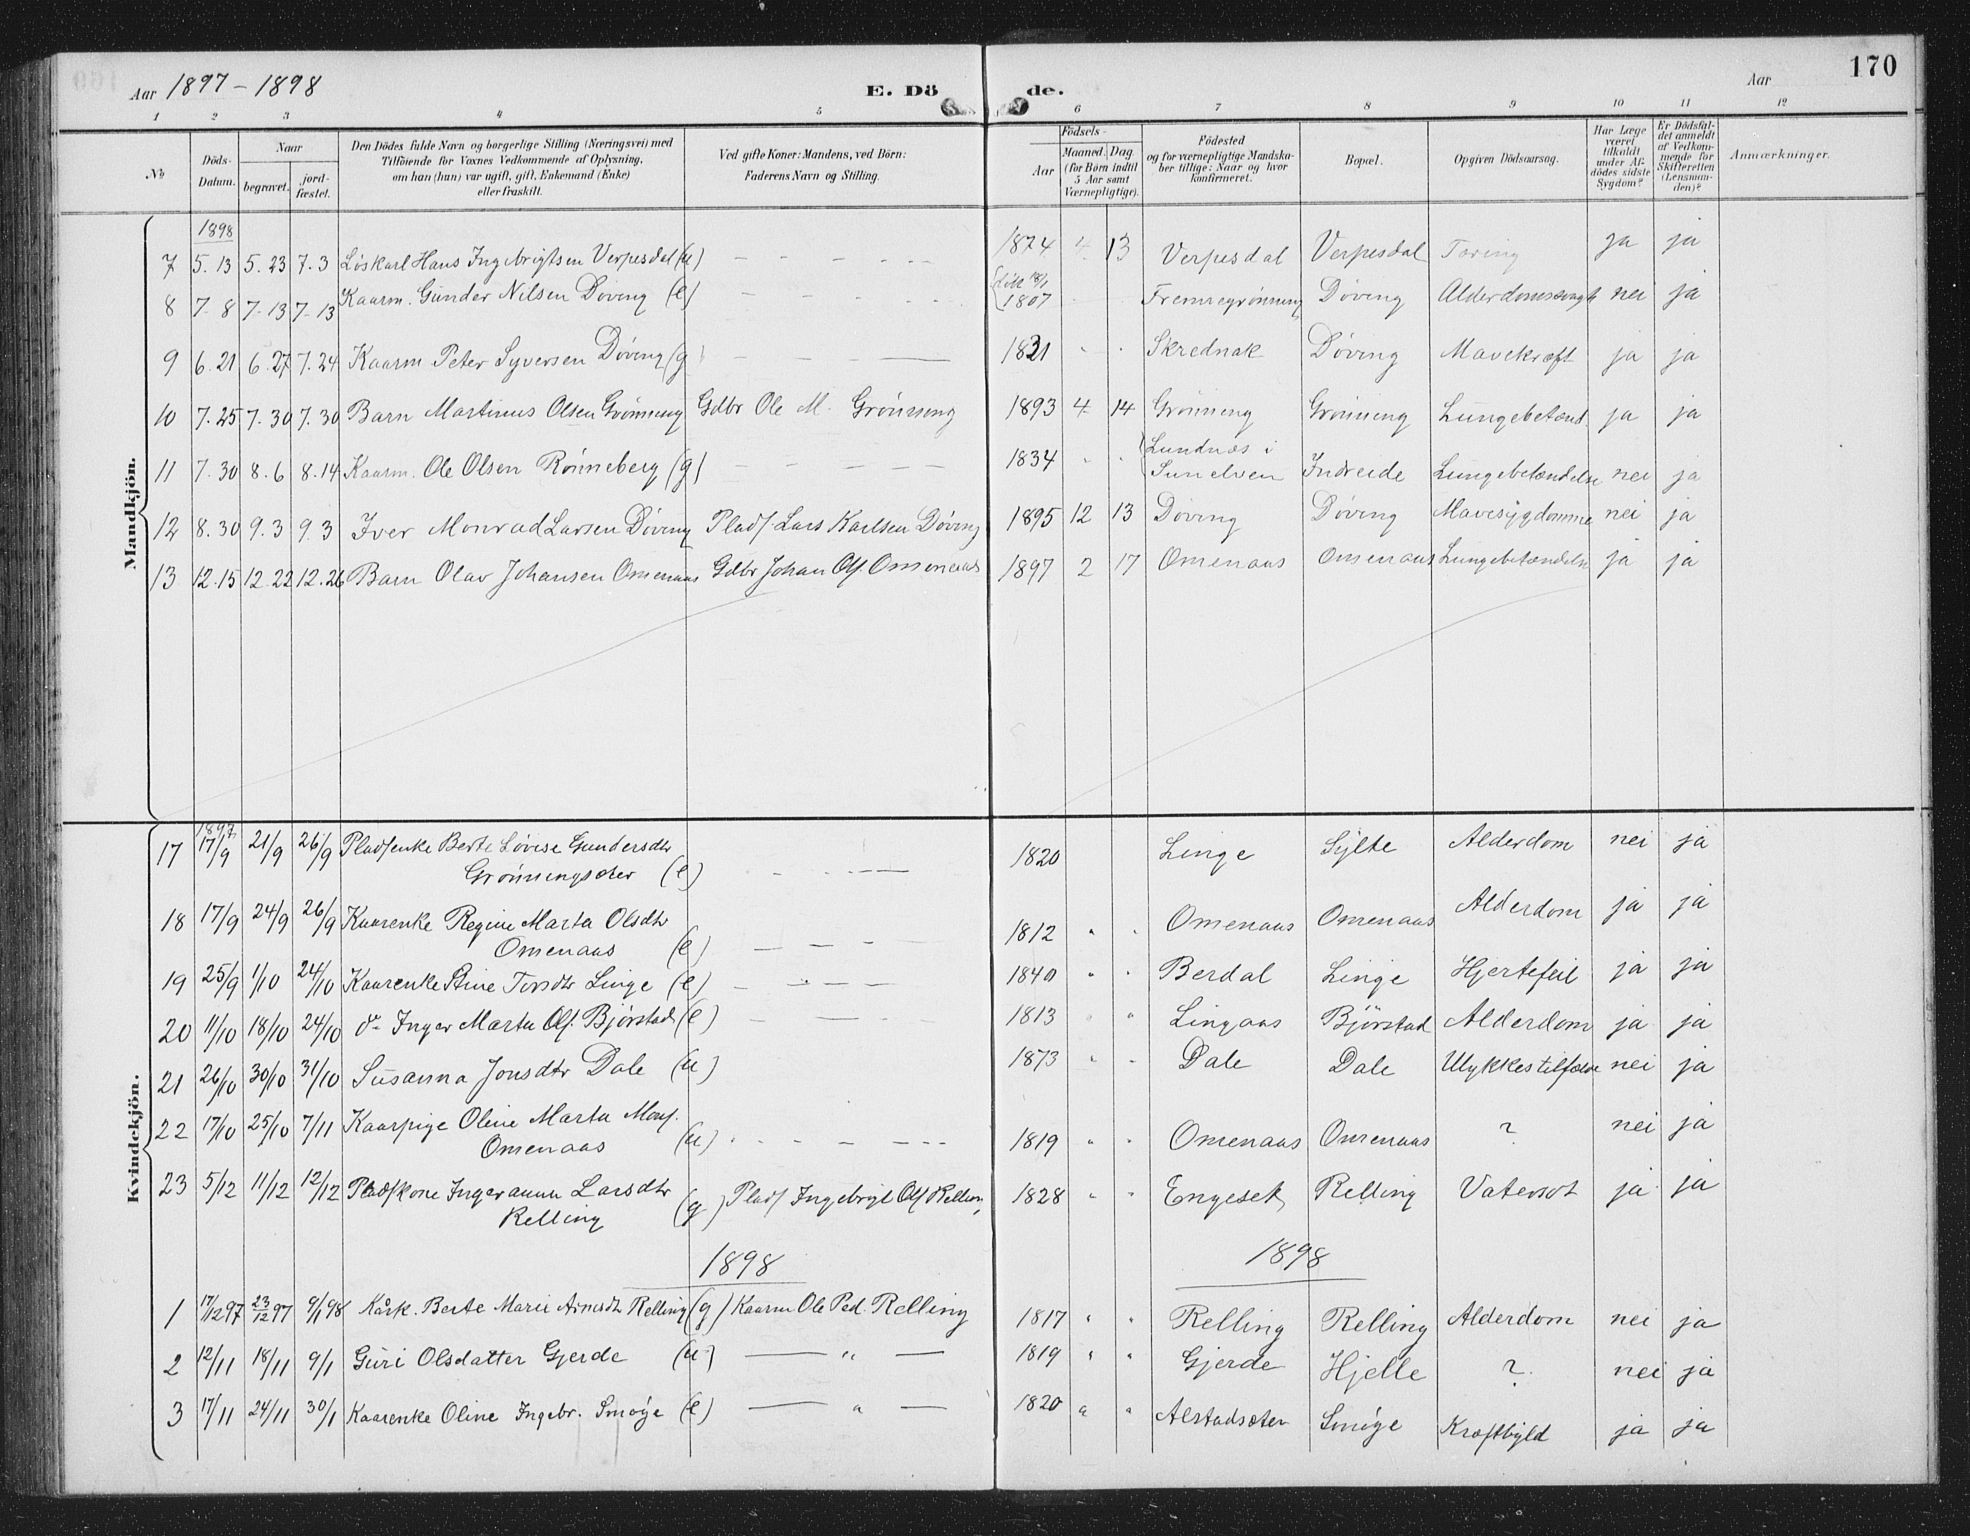 Aar 1897-1898 E. Döde. Aar 170
1 2 3 4 5 6 7 8 9 10 11 12
No
Döds-Datum.
Naar
begravet.
jordfæstet.
Den Dödes fulde Navn og borgerlige Stilling (Næringsvei) med
Tilföiende for Voxnes Vedkommende af Oplysning,
om han (hun) var ugift, gift, Enkemand (Enke)
eller fraskilt.
Ved gifte Koner: Mandens, ved Börn:
Faderens Navn og Stilling.
Födsels-
Aar
Maaned. Dag
(for Börn indtil
5 Aar samt
Værnepligtige).
Födested
og for værnepligtige Mandska-
ber tillige: Naar og hvor
konfirmeret.
Bopæl.
Opgiven Dödsaarsag.
Har Læge
været
tilkaldt
under Af-
dödes sidste
Sygdom?
Er Dödsfal-
det anmeldt
af Vedkom-
mende for
Skifteretten
(Lensman-
den)?
Anmærkninger.
Mandkjön.
1898
7 5.13 5.23 7.3 Løskarl Hans Ingebrigtsen Verpesdal (u) 1824 4 13 Verpesdal Verpesdal Tæring ja ja
8 7.8 7.13 7.13 Kaarm. Gunder Nilsen Døving (e) 1807 Fremregrønning Døving nei ja
9 6.21 6.27 7.24 Kaarm Peter Syversen Døving (g) 1821 " " Skrednak Døving Mavekræft ja ja
10 7.25 7.30 7.30 Barn Martinus Olsen Grønning Gdbr Ole M. Grønning 1893 4 14 Grønning Grønning Lungebetænd. ja ja
11 7.30 8.6 8.14 Kaarm. Ole Olsen Rønneberg (g) 1834 " " Lundnæs i
Sunelven Indreide Lungebetændelse nei ja
12 8.30 9.3 9.3 Iver Monrad Larsen Døving Pladf. Lars Karlsen Døving 1895 12 13 Døving Døving Mavesygdomme nei ja
13 12.15 12.22 12.26 Barn Olav Johansen Omenaas Gdbr Johan Ol. Omenaas 1897 2 17 Omenaas Omenaas Lungebetændelse ja ja
Kvindekjön.
1897
17 17/9 21/9 26/9 Pladsenke Berte Lovise Gundersdtr
Grønningsæter (e) 1820 Linge Sylte Alderdom nei ja
18 17/9 24/9 26/9 Kaarenke Regine Marta Olsdtr
Omenaas (e) 1812 " " Omenaas Omenaas Alderdom ja ja
19 25/9 1/10 24/10 Kaarenke Stine Torsdtr Linge (e) 1840 " " Berdal Linge Hjertefeil ja ja
20 11/10 18/10 24/10 do Inger Marta Ols. Bjørstad (e) 1813 " " Lingaas Bjørstad Alderdom ja ja
21 26/10 30/10 31/10 Susanna Jonsdtr Dale (u) 1873 " " Dale Dale Ulykkestilfælde nei ja
22 17/10 25/10 7/11 Kaarpige Oline Marta Mons.
Omenaas (u) 1819 " " Omenaas Omenaas ? nei ja
23 5/12 11/12 12/12 Pladskone Ingeranna Larsdtr
Relling (g) Plads Ingebrigt Ols Relling 1828 " " Engeset Relling Vatersot ja ja
1898 1898
1 17/12 97 23/12 97 9/1 98 Kårk. Berte Marie Arnesdtr Relling (g) Kaarm Ole Ped. Relling 1817 " " Relling Relling Alderdom nei ja
2 12/11 18/11 9/1 Guri Olsdatter Gjerde (u) " 1819 " " Gjerde Hjelle ? nei ja
3 17/11 24/11 30/1 Kaarenke Oline Ingebr. Smøge (e) " 1820 " " Alstadsæter Smøge Kræftbyld ja ja